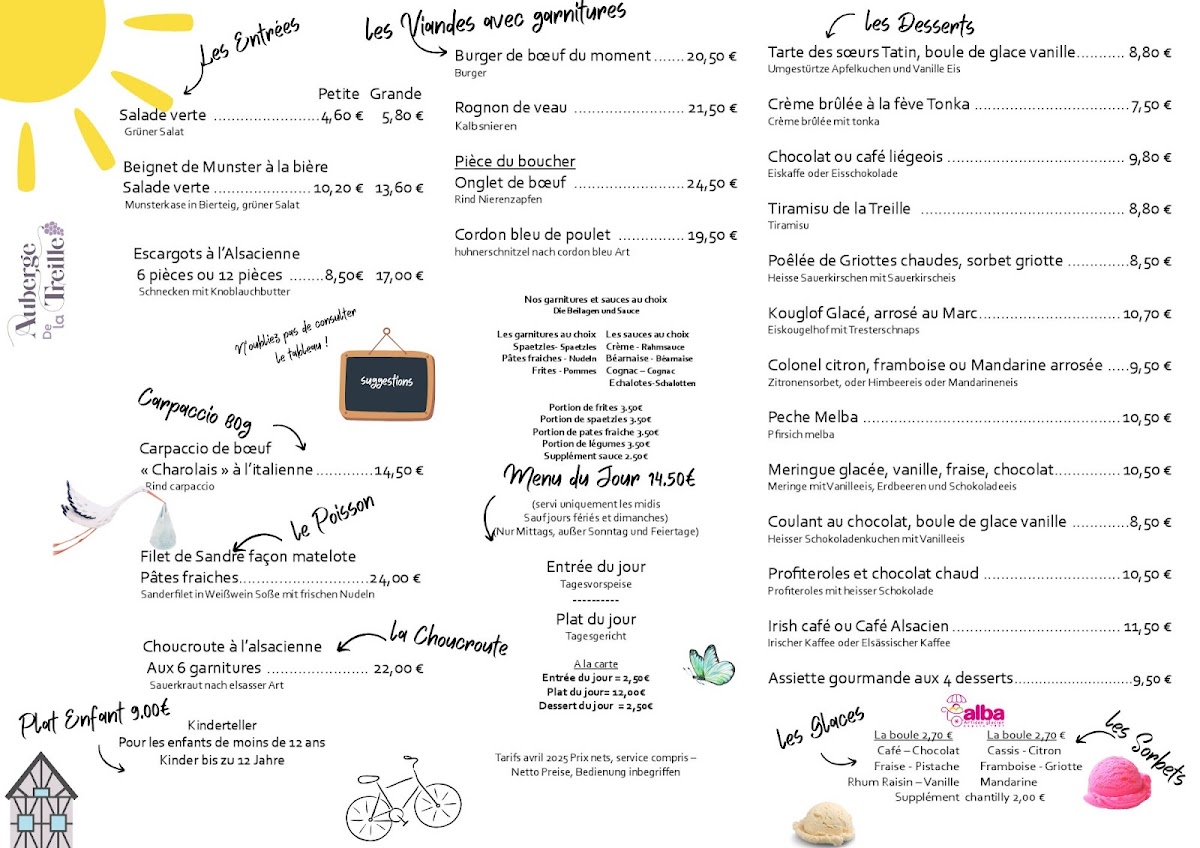 Auberge
De
la Treille
Les Entrées
Petite Grande
Salade verte ........................4,60 € 5,80 €
Grüner Salat
Beignet de Munster à la bière
Salade verte ......................10,20 € 13,60 €
Munsterkase in Bierteig, grüner Salat
Escargots à l'Alsacienne
6 pièces ou 12 pièces ........8,50€ 17,00 €
Schnecken mit Knoblauchbutter
N'oubliez pas de consulter
le tableau !
suggestions
Carpaccio 80g
Carpaccio de bœuf
« Charolais » à l'italienne .............14,50 €
Rind carpaccio
Le Poisson
Filet de Sandre façon matelote
Pâtes fraiches..............................24,00 €
Sanderfilet in Weißwein Soße mit frischen Nudeln
La Choucroute
Choucroute à l'alsacienne
Aux 6 garnitures ........................ 22,00 €
Sauerkraut nach elsasser Art
Plat Enfant 9.00€
Kinderteller
Pour les enfants de moins de 12 ans
Kinder bis zu 12 Jahre
Les Viandes avec garnitures
Burger de bœuf du moment .......20,50 €
Burger
Rognon de veau .........................21,50 €
Kalbsnieren
Pièce du boucher
Onglet de bœuf .........................24,50 €
Rind Nierenzapfen
Cordon bleu de poulet ...............19,50 €
huhnerschnitzel nach cordon bleu Art
Nos garnitures et sauces au choix
Die Beilagen und Sauce
Les garnitures au choix Les sauces au choix
Spaetzles- Spaetzles Crème - Rahmsauce
Pâtes fraiches - Nudeln Béarnaise - Béarnaise
Frites - Pommes Cognac – Cognac
Echalotes-Schalotten
Portion de frites 3.50€
Portion de spaetzles 3.50€
Portion de pates fraiche 3.50€
Portion de légumes 3.50€
Supplément sauce 2.50€
Menu du Jour 14.50€
(servi uniquement les midis
Sauf jours fériés et dimanches)
(Nur Mittags, außer Sonntag und Feiertage)
Entrée du jour
Tagesvorspeise
----------
Plat du jour
Tagesgericht
A la carte
Entrée du jour = 2,50€
Plat du jour= 12,00€
Dessert du jour = 2,50€
Tarifs avril 2025 Prix nets, service compris –
Netto Preise, Bedienung inbegriffen
Les Desserts
Tarte des sœurs Tatin, boule de glace vanille........... 8,80 €
Umgestürtze Apfelkuchen und Vanille Eis
Crème brûlée à la fève Tonka ...................................7,50 €
Crème brûlée mit tonka
Chocolat ou café liégeois ........................................ 9,80 €
Eiskaffe oder Eisschokolade
Tiramisu de la Treille .............................................. 8,80 €
Tiramisu
Poêlée de Griottes chaudes, sorbet griotte .............8,50 €
Heisse Sauerkirschen mit Sauerkirscheis
Kouglof Glacé, arrosé au Marc................................ 10,70 €
Eiskougelhof mit Tresterschnaps
Colonel citron, framboise ou Mandarine arrosée .....9,50 €
Zitronensorbet, oder Himbeereis oder Mandarineneis
Peche Melba ..........................................................10,50 €
Pfirsich melba
Meringue glacée, vanille, fraise, chocolat...............10,50 €
Meringe mit Vanilleeis, Erdbeeren und Schokoladeeis
Coulant au chocolat, boule de glace vanille ............8,50 €
Heisser Schokoladenkuchen mit Vanilleeis
Profiteroles et chocolat chaud ...............................10,50 €
Profiteroles mit heisser Schokolade
Irish café ou Café Alsacien ......................................11,50 €
Irischer Kaffee oder Elsässischer Kaffee
Assiette gourmande aux 4 desserts..........................9,50 €
alba
Les Glaces
Les Sorbets
La boule 2,70 € La boule 2,70 €
Café – Chocolat Cassis - Citron
Fraise - Pistache Framboise - Griotte
Rhum Raisin – Vanille Mandarine
Supplément chantilly 2,00 €